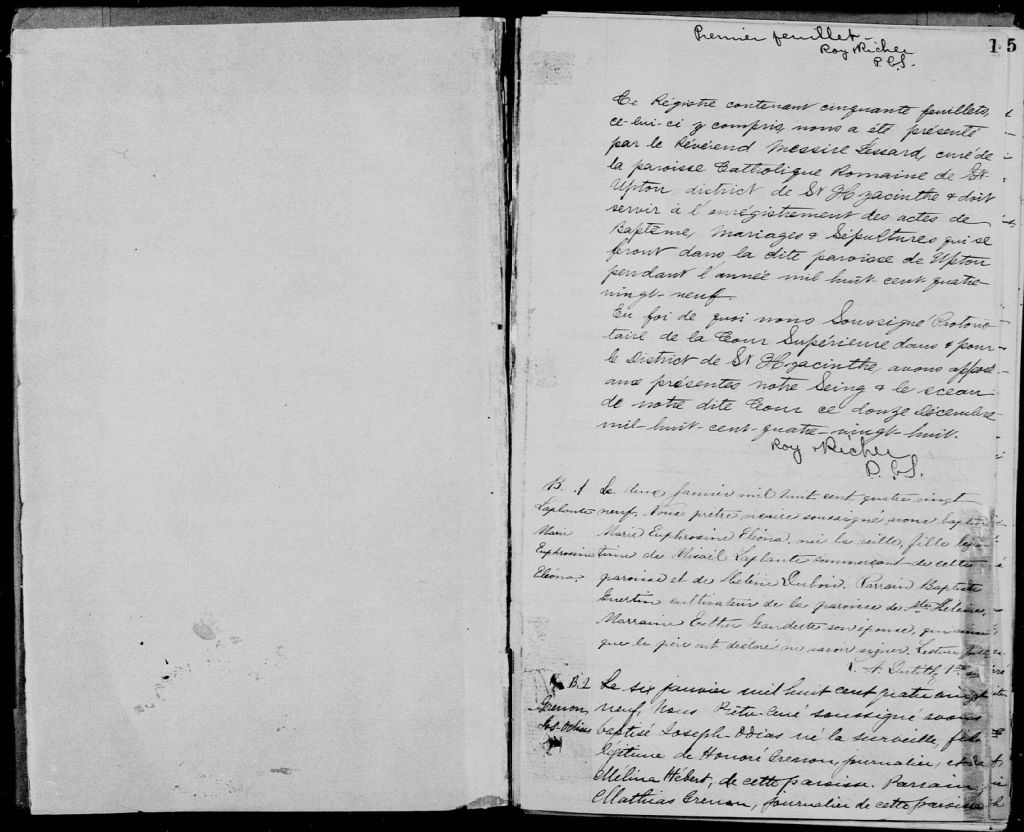 Premier feuillet
Roy & Richer
P.C.S.
15
Ce Régistre contenant cinquante feuillets,
ce-lui-ci y compris, nous a été présenté
par le Révérend Messire Lessard, curé de
la paroisse Catholique Romaine de St
Upton district de St Hyacinthe & doit
servir à l'enrégistrement des actes de
Baptême, Mariages & Sépultures qui se
feront dans la dite paroisse de Upton
pendant l'année mil huit cent quatre-
vingt-neuf.
En foi de quoi nous Soussigné Protono-
taire de la Cour Supérieure dans & pour
le District de St Hyacinthe avons apposé
aux présentes notre Seing & le sceau
de notre dite Cour ce douze Décembre
mil-huit-cent-quatre-vingt-huit.
Roy & Richer
P.C.S.
B. 1
Laplante
Marie
Euphrosine
Eléona
Le deux janvier mil huit cent quatre vingt
neuf, Nous prêtre vicaire soussigné avons baptisé
Marie Euphrosine Eléona, née la veille, fille légi-
time de Misaël Laplante commerçant de cette
paroisse et de Hélène Dubois. Parrain Baptiste
Guertin cultivateur de la paroisse de Ste Hélène,
Marraine Esther son épouse, qui ainsi
que le père ont déclaré ne savoir signer. Lecture faite
B. 2
Grenon,
Jos-Odias
Le six janvier mil huit cent quatre vingt
neuf, Nous Prêtre Curé soussigné avons
baptisé Joseph-Odias né la surveille, fils
légitime de Honoré Grenon, journalier, et de
Mélina Hébert, de cette paroisse. Parrain,
Mathias Grenon, journalier de cette paroisse